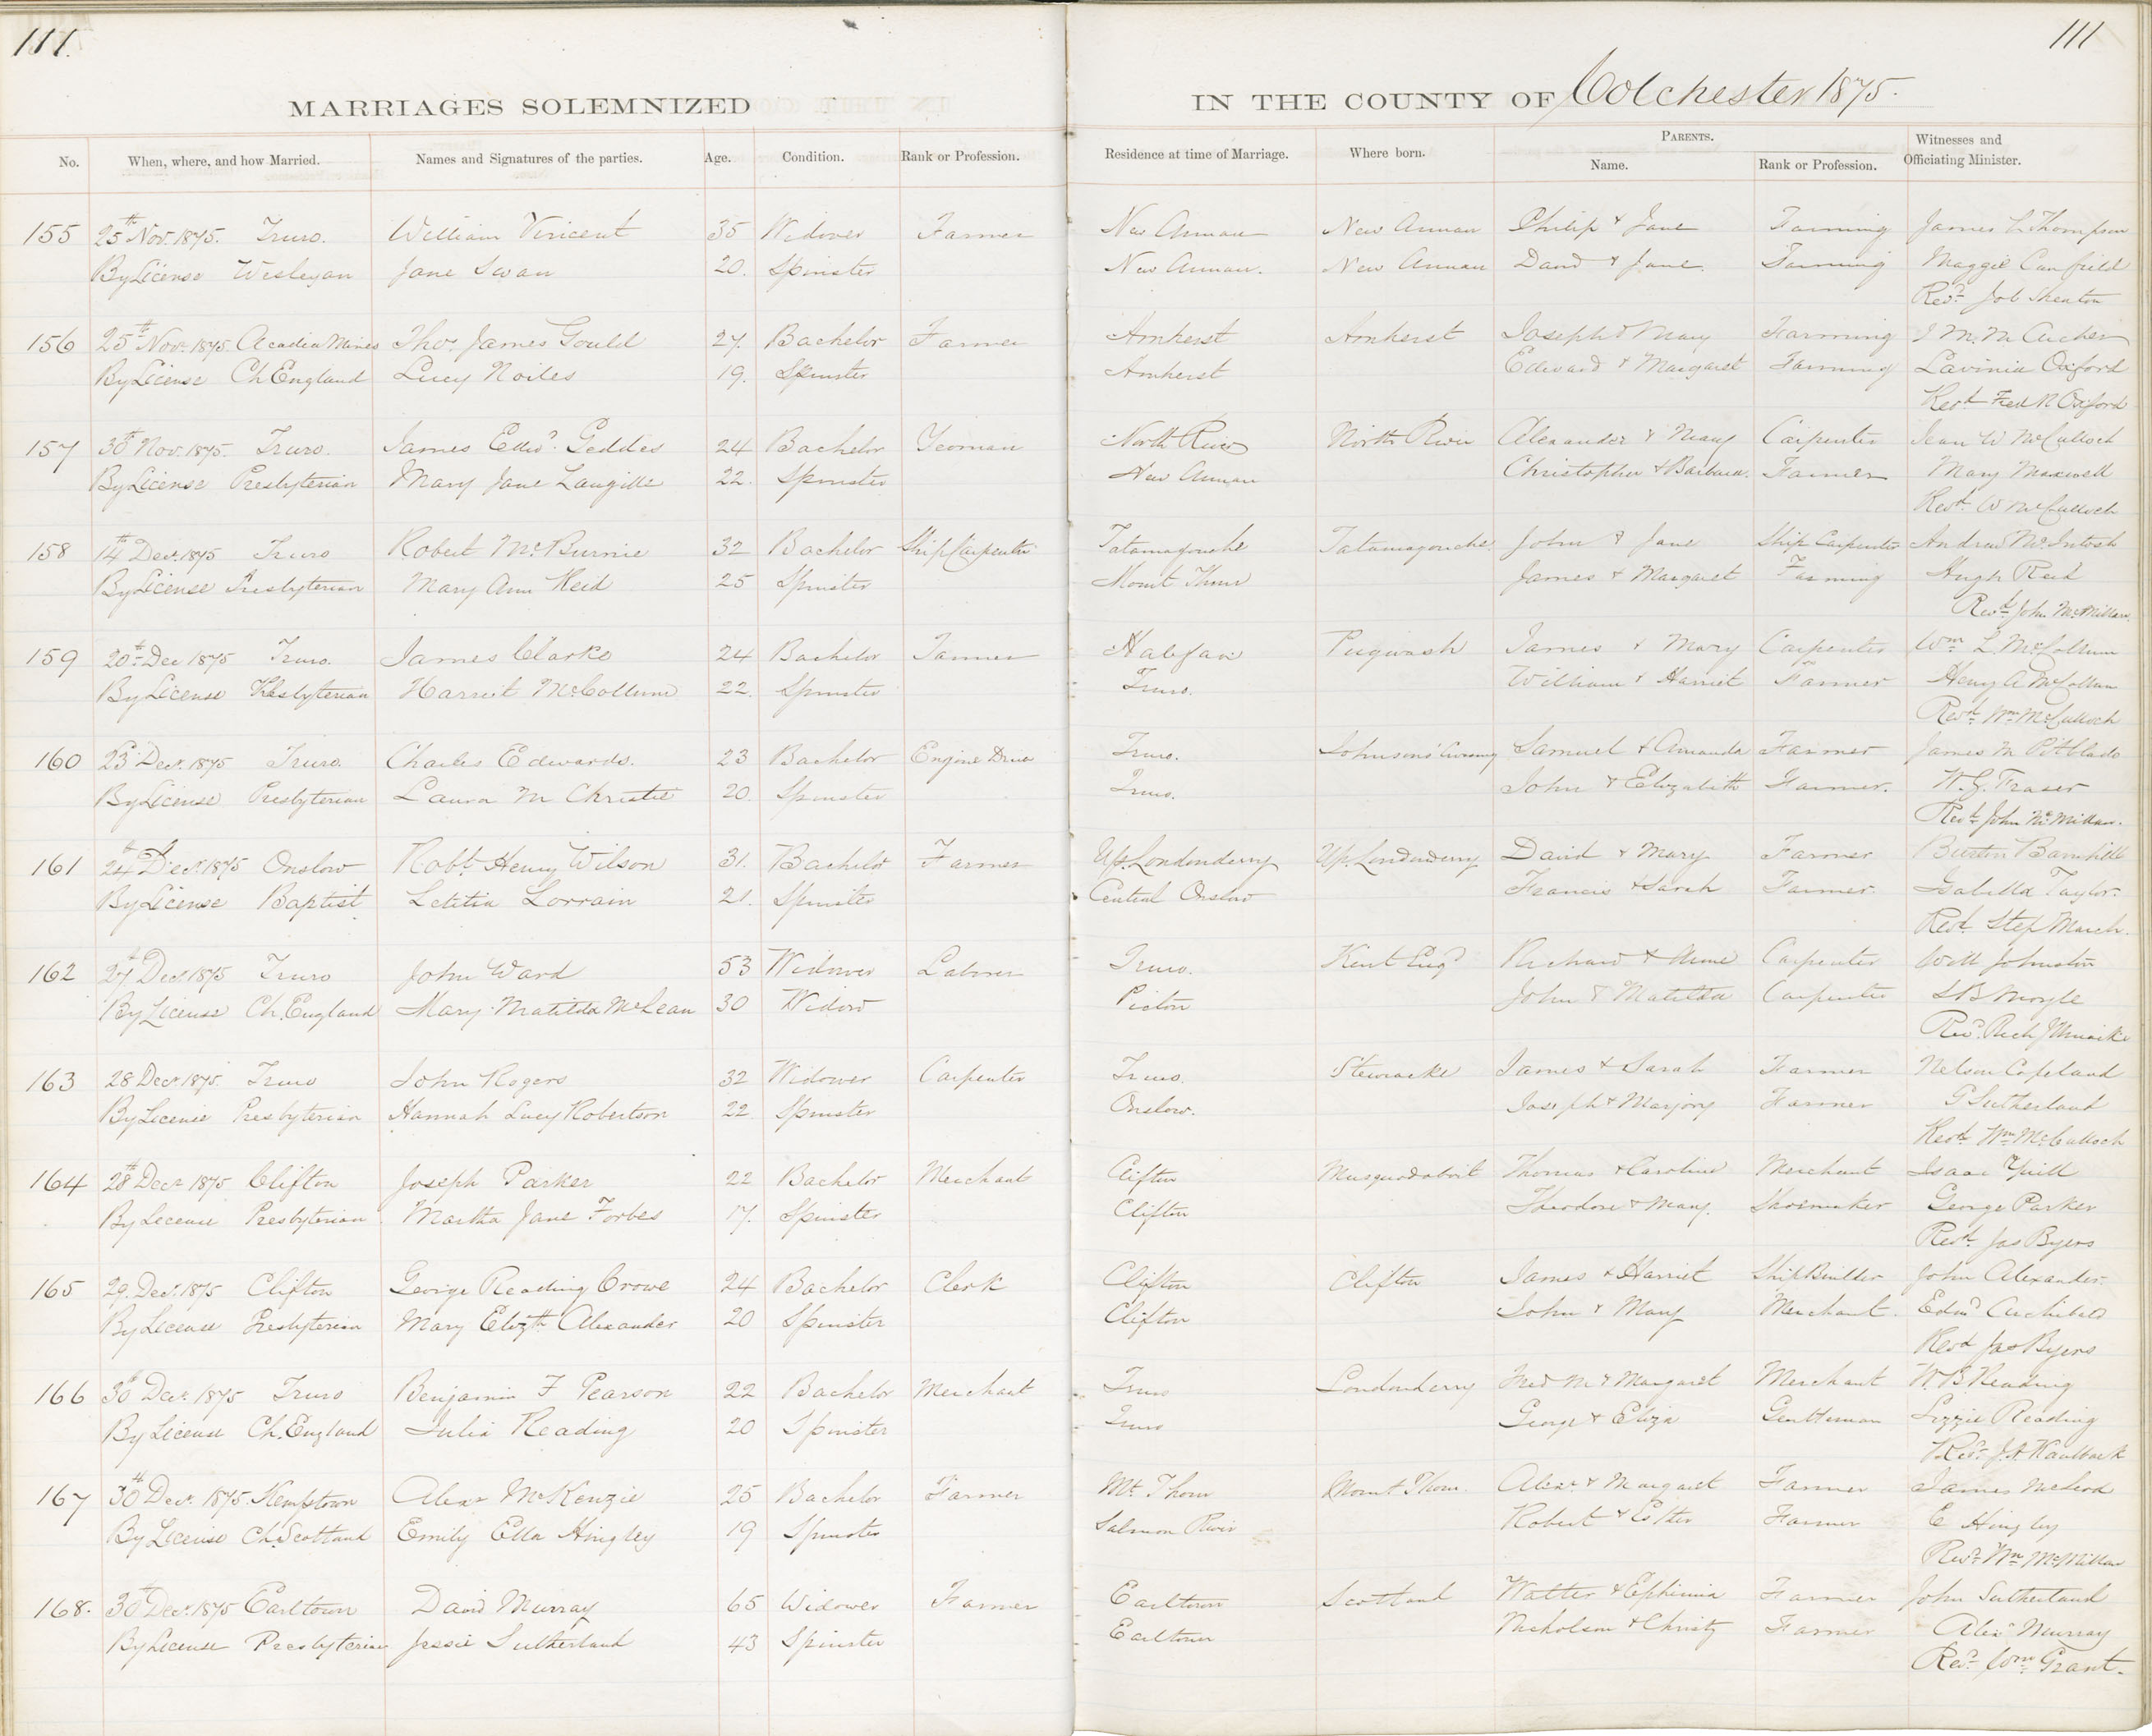 111.
111
MARRIAGES SOLEMNIZED
IN THE COUNTY OF Colchester 1875.
No. When, where, and how Married. Names and Signatures of the parties. Age. Condition. Rank or Profession. Residence at time of Marriage. Where born. PARENTS. Name. Rank or Profession. Witnesses and Officiating Minister.
155 25th Nov. 1875. Truro. William Vincent 35 Widower Farmer New Annan New Annan Philip & Jane Farming James Thompson
By License Wesleyan Jane Swan 20. Spinster New Annan. New Annan David & Jane. Farming Maggie Canfield
Revd Job Shenton
156 25th Novr 1875. Acadia Mines Tho. James Gould 27. Bachelor Farmer Amherst Amherst Joseph & Mary Farming
By License Ch England Lucy Noiles 19. Spinster Amherst Edward & Margaret Farming Lavinia Oxford
Revd Fred N Oxford
157 30th Nov. 1875. Truro. James Edwd. Geddes 24 Bachelor Yeoman North River North River Alexander & Mary Carpenter Jean W. McCulloch
By License Presbyterian Mary Jane Langille 22. Spinster New Annan Christopher & Barbara. Farmer Mary Maxwell
Revd. W McCulloch
158 14th Decr 1875 Truro Robert McBurnie 32 Bachelor Ship Carpenter Tatamagouche Tatamagouche. John & Jane Ship Carpenter Andrew McIntosh
By License Presbyterian Mary Ann Reid 25 Spinster Mount Thom James & Margaret Farming Hugh Reid
Revd John McMillan.
159 20th Dec 1875 Truro. James Clarke 24 Bachelor Tanner Halifax Pugwash James & Mary Carpenter Wm L. McCollum
By License Presbyterian Harriet McCollum 22. Spinster Truro. William & Harriet Farmer Henry A McCollum
Revd Wm McCulloch
160 23d Decr. 1875 Truro. Charles Edwards. 23 Bachelor Engine Driver Truro. Johnsons Crossing Samuel & Amanda Farmer James M Pitblado
By License Presbyterian Laura M Christie 20. Spinster Truro. John & Elizabeth Farmer. W. G. Fraser
Revd John McMillan.
161 24th Decr. 1875 Onslow Robt Henry Wilson 31. Bachelor Farmer Up. Londonderry Up. Londonderry David & Mary Farmer Burton Barnhill
By License Baptist Letitia Lorrain 21. Spinster Central Onslow Francis & Sarah Farmer. Isabella Taylor.
Revd. Step March.
162 27th Decr. 1875 Truro John Ward 53 Widower Laborer Truro. Kent Engd Richard & Anne Carpenter Will Johnston
By License Ch. England Mary Matilda McLean 30 Widow Pictou John & Matilda Carpenter
163 28 Decr. 1875. Truro John Rogers 32 Widower Carpenter Truro. Stewiacke James & Sarah Farmer Nelson Copeland
By License Presbyterian Hannah Lucy Robertson 22. Spinster Onslow. Joseph & Marjory Farmer G Sutherland
Revd. Wm McCulloch
164 28th Decr 1875 Clifton Joseph Parker 22 Bachelor Merchant Clifton Musquodoboit Thomas & Caroline Merchant Isaac Yuill
By License Presbyterian Martha Jane Forbes 17. Spinster Clifton Theodore & Mary. Shoemaker George Parker
Revd. Jas Byers
165 29. Decr. 1875 Clifton George Reading Crowe 24 Bachelor Clerk Clifton Clifton James & Harriet Ship Builder John Alexander.
By License Presbyterian Mary Elizth Alexander 20 Spinster Clifton John & Mary Merchant. Edwd Archibald
Revd Jas Byers
166 30th Decr. 1875 Truro Benjamin F Pearson 22 Bachelor Merchant Truro Londonderry Fred M. & Margaret Merchant W. B. Reading
By License Ch. England Julia Reading 20 Spinster Truro George & Eliza Gentleman Lizzie Reading
Revd. J. A. Kaulback
167 30th Decr. 1875. Kemptown Alexr McKenzie 25 Bachelor Farmer Mt. Thom Mount Thom. Alexr. & Margaret Farmer James McLeod
By License Ch. Scotland Emily Ella Hingley 19 Spinster Salmon River Robert & Esther Farmer E Hingley
Revd. Wm McMillan
168. 30th Decr. 1875 Earltown David Murray 65 Widower Farmer Earltown Scotland Walter & Ephimia Farmer John Sutherland
By License Presbyterian Jessie Sutherland 43 Spinster Earltown Nicholson & Christy Farmer Alexr Murray
Revd. Wm Grant.